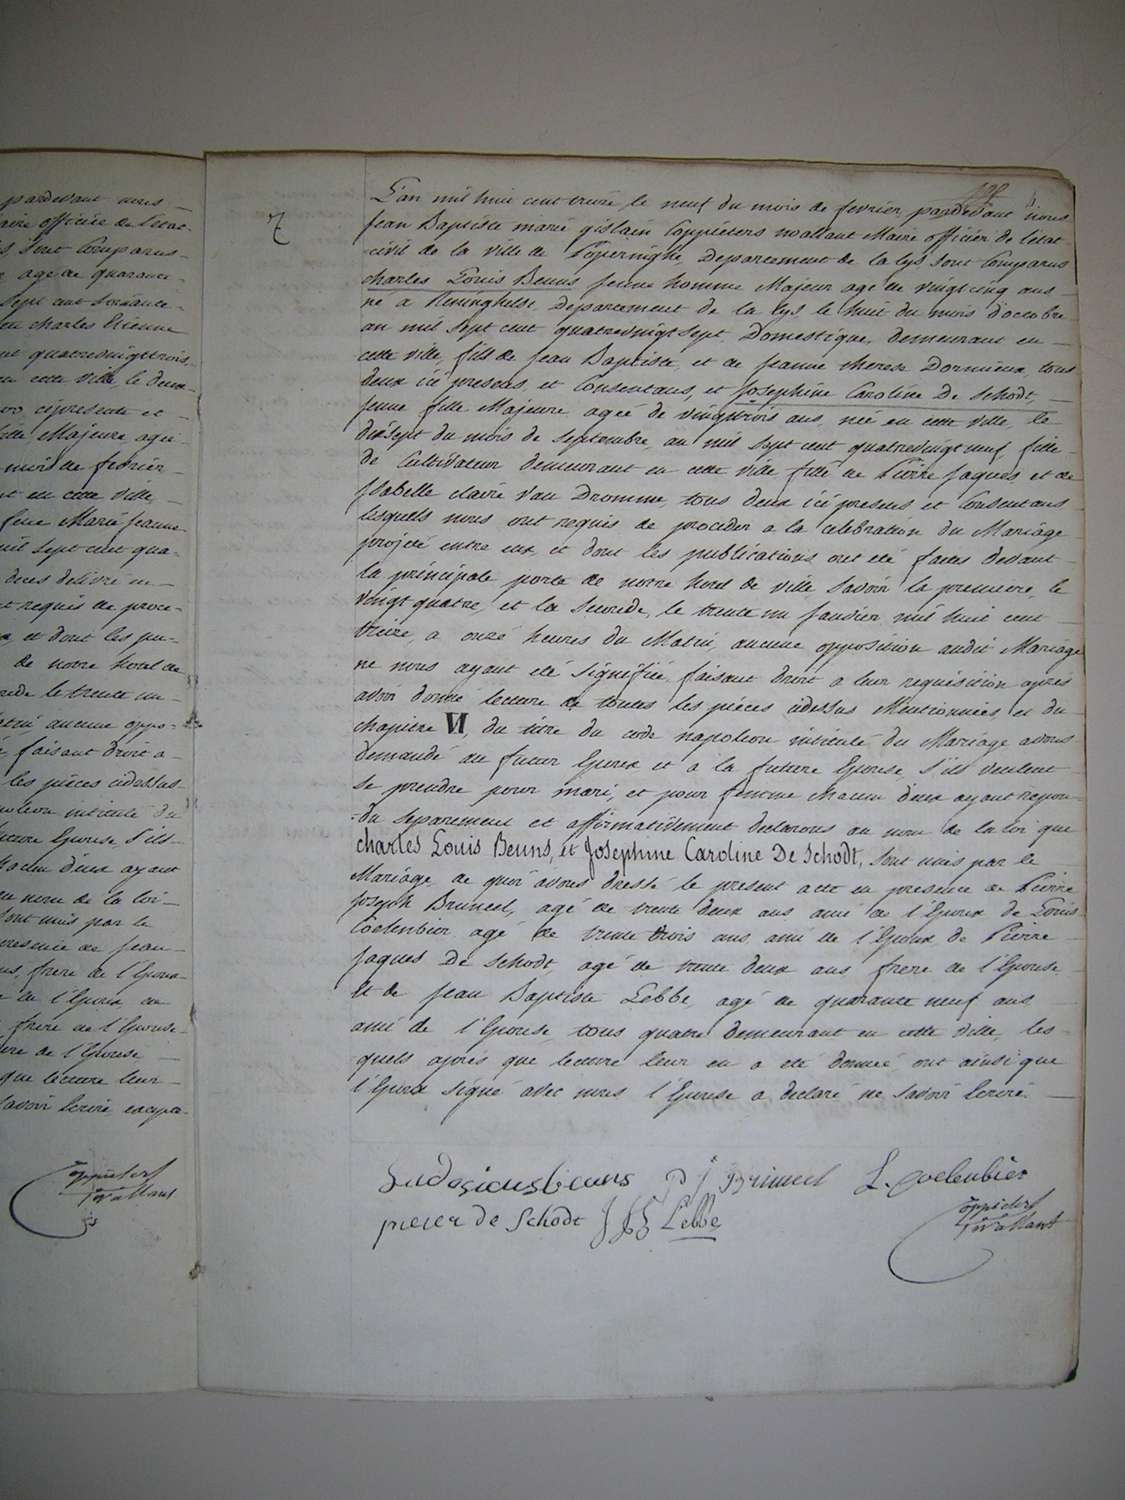 pardevant nous
maire officier de l'état
sont Comparus
age de quarante
sept cent soixante
feu charles Etienne
quatrevingttrois
en cette ville le deux
ciprésente et
fille Majeure agée
mois de fevrier
en cette ville
feue Marie jeanne
mil sept cent qua-
deces delivré en
requis de proce-
et dont les pu-
de notre hotel de
le trente un
aucune oppo-
faisant droit a
les pièces cidessus
napoleon intitulé du
future Epouse s'ils
chacun d'eux ayant
au nom de la loi
sont unis par le
presence de jean
frere de l'Epoux
de l'Epoux de
frere de l'Epouse
de l'Epouse
que lecture leur
savoir Ecrire excepté
Coppieters
Tvallant
7
L'an mil huit cent treize, le neuf du mois de fevrier, pardevant nous
Jean Baptiste marie gislain Coppieters Maire officier de l'état
civil de la ville de Poperinghe, Departement de la lys sont Comparus
charles Louis Beuns jeune homme Majeur age de vingt cinq ans
né a Reninghelst, Departement de la lys le huit du mois d'octobre
an mil sept cent quatrevingt sept, Domestique, demeurant en
cette ville, fils de jean Baptiste, et de jeanne therese Dornieux, tous
deux ici presens, et Consentans, et Josephine Caroline De Schodt,
jeune fille Majeure agée de vingttrois ans, née en cette ville, le
dixsept du mois de septembre, an mil sept cent quatrevingt neuf, fille
de Cultivateur demeurant en cette ville fille de Pierre jaques et de
Isabelle claire Van Dromme, tous deux ici presens et Consentans
lesquels nous ont requis de proceder a la celebration du Mariage
projeté entre eux, et dont les publications ont été faites devant
la principale porte de notre hotel de ville savoir la premiere, le
vingt quatre, et la seconde, le trente un janvier mil huit cent
treize, a onze heures du Matin, aucune opposition audit Mariage
ne nous ayant été signifiée, faisant droit a leur requisition après
avoir donné lecture de toutes les pièces cidessus Mentionnées, et du
chapitre VI, du titre du code napoleon intitulé du Mariage avons
demandé au futur Epoux et a la future Epouse, s'ils veulent
se prendre pour mari, et pour femme chacun d'eux ayant repon-
du separement et affirmativement declarons au nom de la loi que
charles Louis Beuns, et Josephine Caroline De Schodt, sont unis par le
Mariage, de quoi avons dressé le present acte en presence de Pierre
Joseph Bruneel, agé de trente deux ans ami de l'Epoux de Louis
Coelenbier agé de trente trois ans, ami de l'Epoux de Pierre
Jaques De Schodt, agé de trente deux ans frere de l'Epouse
et de Jean Baptiste Lebbe, agé de quarante neuf ans
ami de l'Epouse, tous quatre demeurant en cette ville, les-
quels après que lecture leur en a été donnée, ont ainsi que
l'Epoux signé avec nous l'Epouse a declaré ne savoir Ecrire.
Ludovicus Beuns P J Bruneel L. Coelenbier
pieter de Schodt J B Lebbe
Coppieters
Tvallant